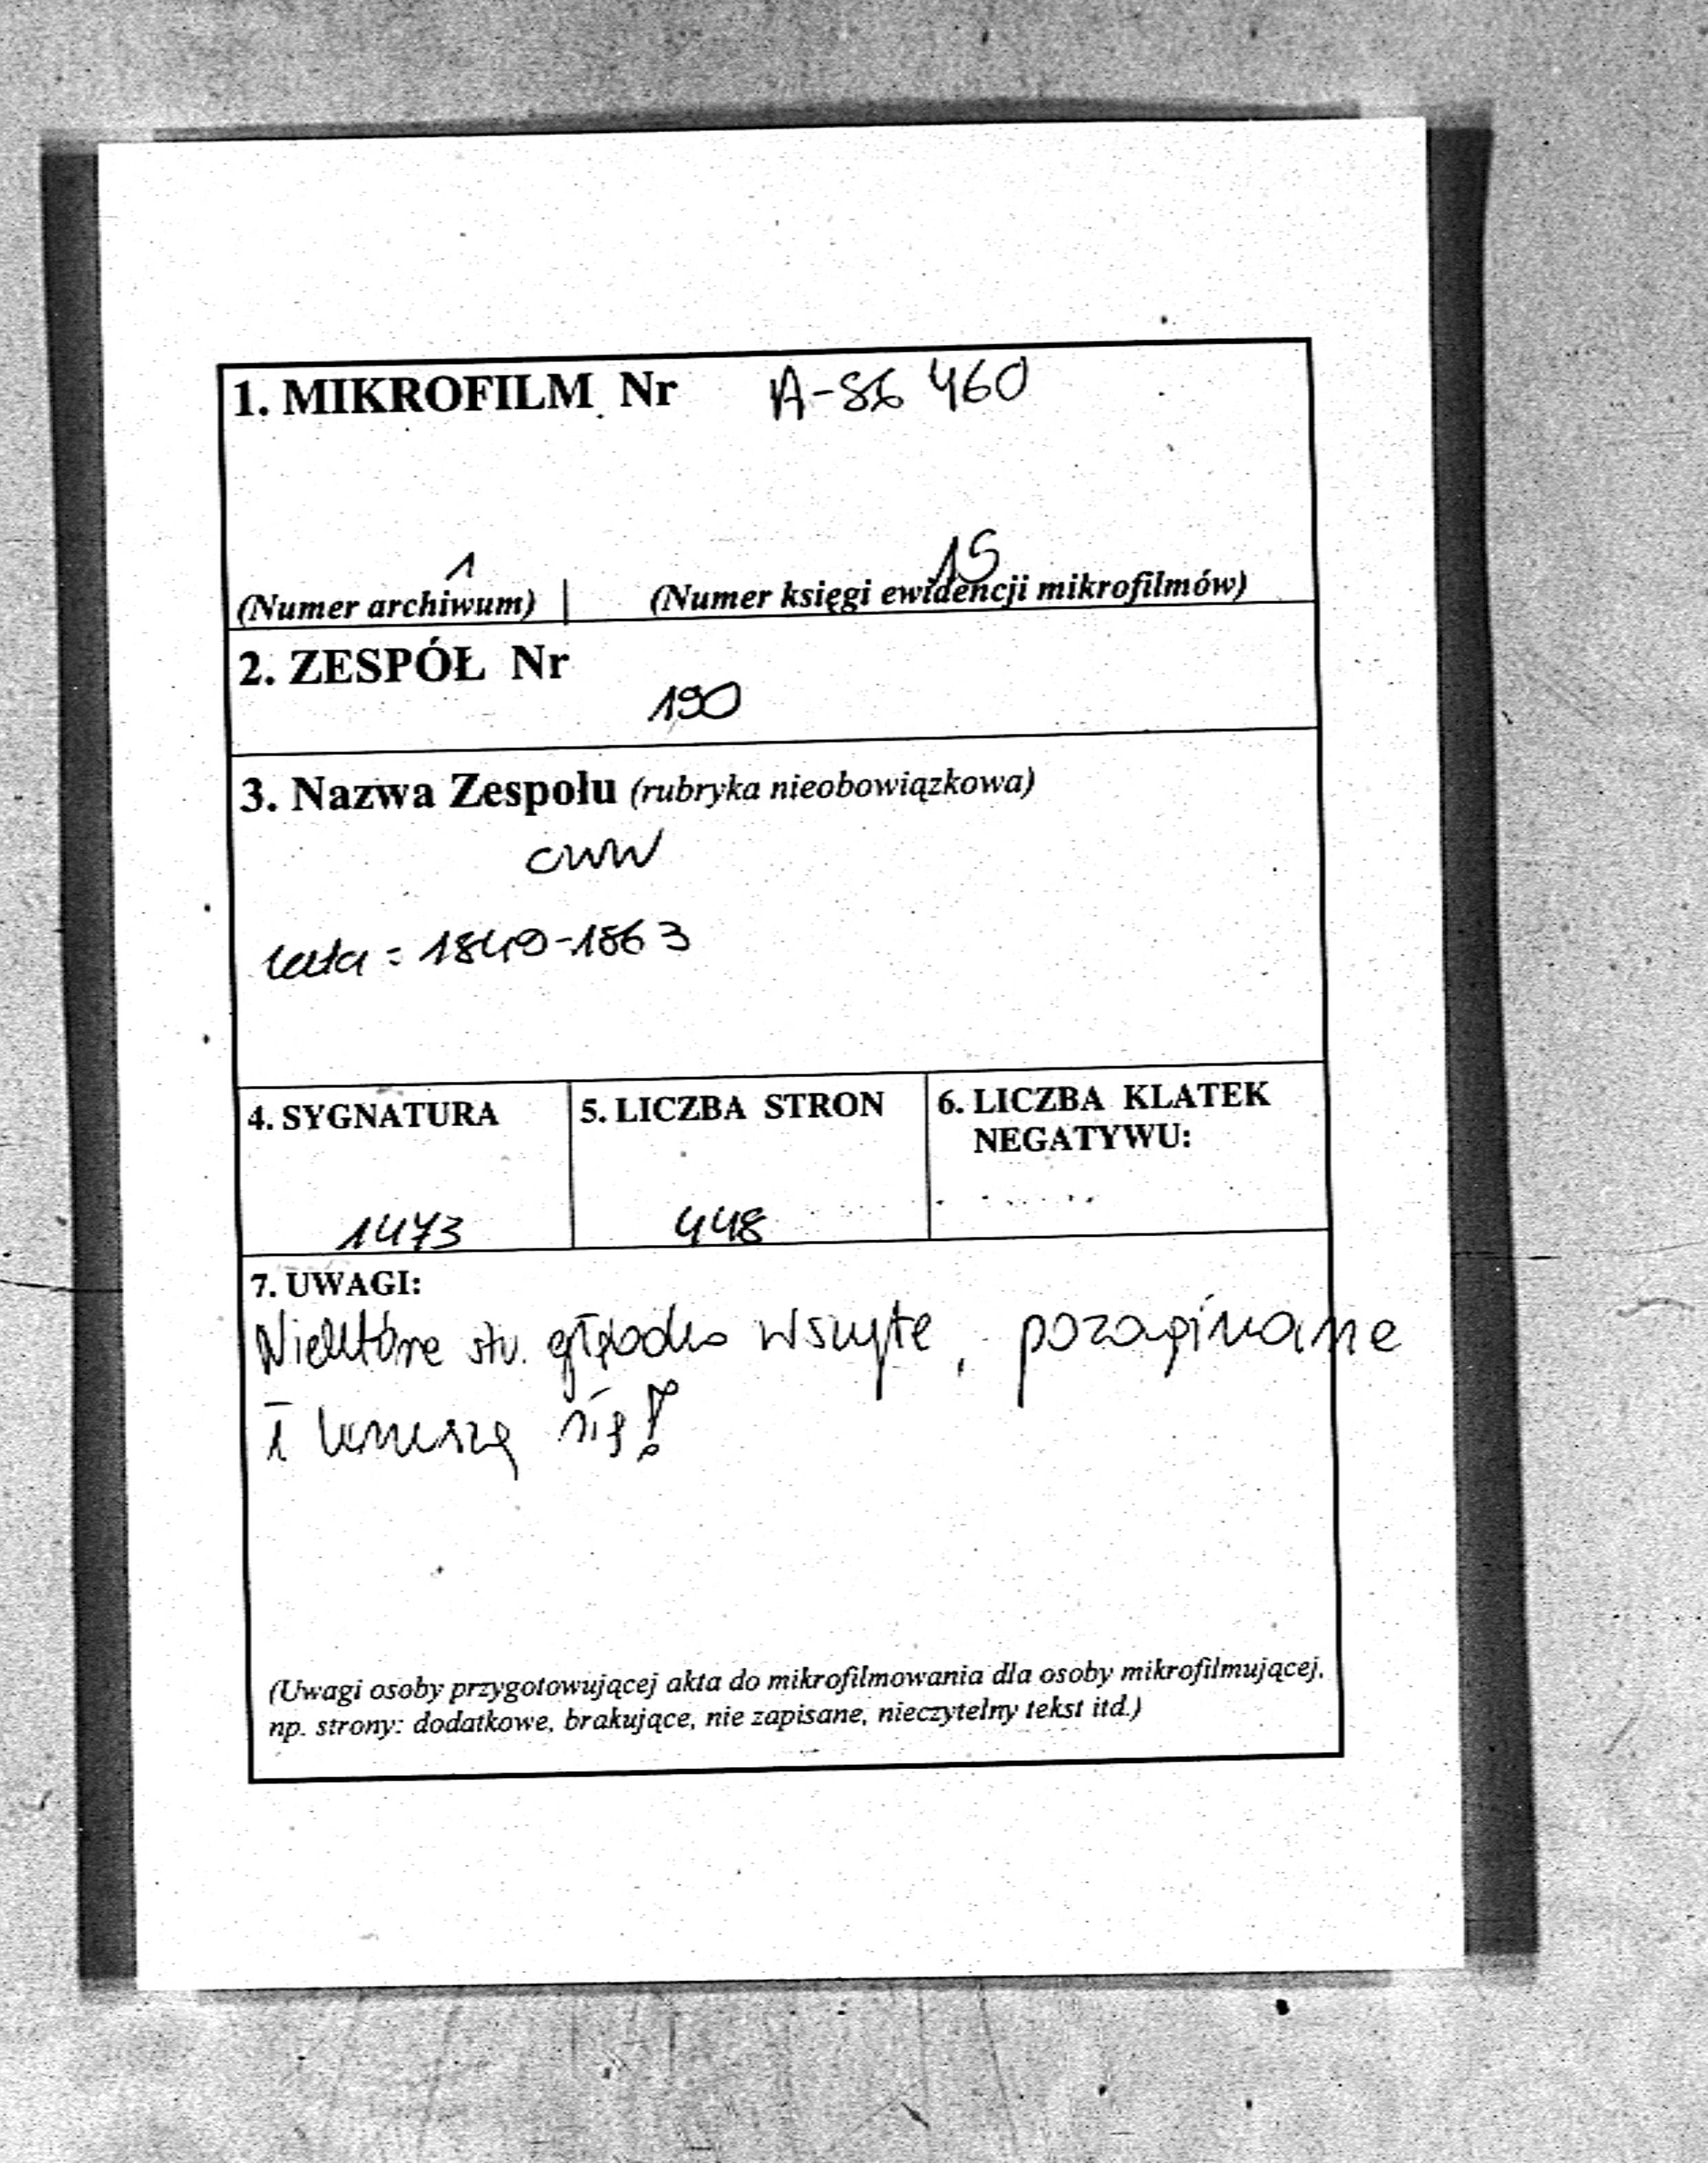 1. MIKROFILM Nr A-86 460
1 15
(Numer archiwum) | (Numer księgi ewidencji mikrofilmów)
2. ZESPÓŁ Nr
190
3. Nazwa Zespołu (rubryka nieobowiązkowa)
CWW
lata = 1849-1863
4. SYGNATURA 5. LICZBA STRON 6. LICZBA KLATEK
NEGATYWU:
1473 448
7. UWAGI:
Niektóre str. głęboko wszyte, pozaginane
i kruszą się!
(Uwagi osoby przygotowującej akta do mikrofilmowania dla osoby mikrofilmującej,
np. strony: dodatkowe, brakujące, nie zapisane, nieczytelny tekst itd.)